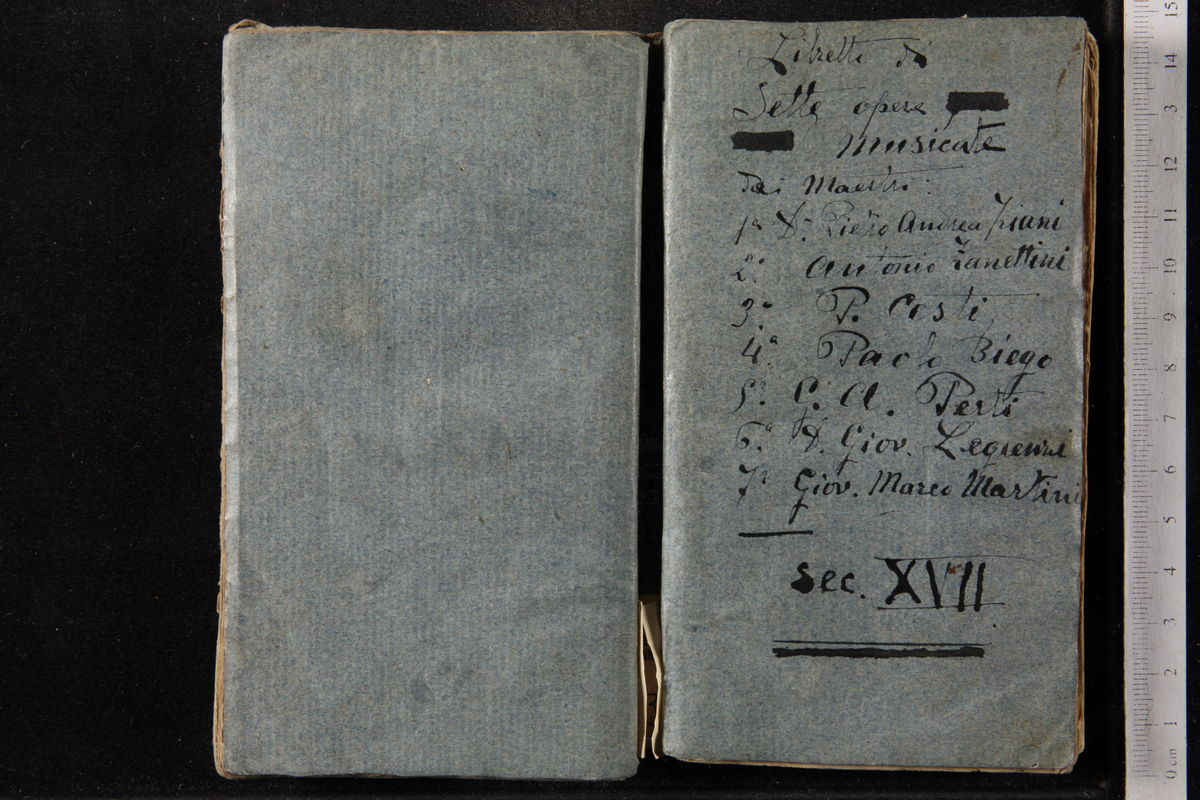 Libretti di
Sette opere
musicate
dai Maestri:
1º D. Pietro Andrea Ziani
2º Antonio Zanettini
3º P. Costi
4º Paolo Biego
5º G. A. Perti
6º D. Giov. Legrenzi
7º Giov. Marco Martini
sec. XVII
0 cm 1 2 3 4 5 6 7 8 9 10 11 12 13 14 15